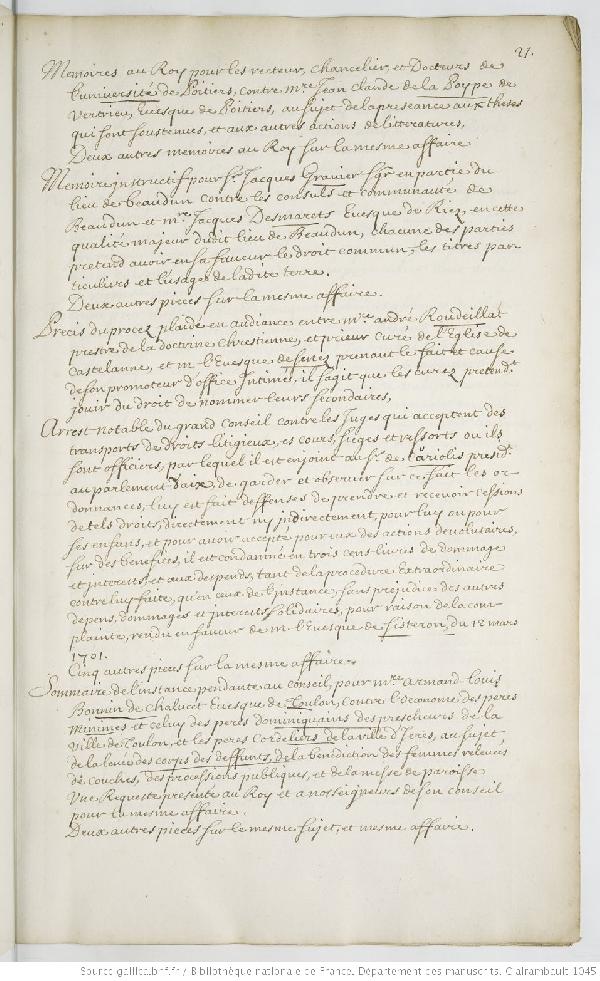 27.
Memoires au Roy pour les recteur, Chancelier, et Docteurs de
l'université de Poitiers, contre mre Jean Claude de la Poype de
Vertrieu, Euesque de Poitiers, au sujet de la preseance aux theses
qui sont soustenues, et aux autres actions de litteratures.
Deux autres memoires au Roy sur la mesme affaire
Memoire instructif pour sr. Jacques Gravier sgr en partie du
lieu de beaudun contre les consuls et communauté de
Beaudun et mre Jacques Desmarets Euesque de Riez, en cette
qualité majeur dudit lieu de Beaudun, chacune des parties
pretend auoir en sa faueur le droit commun, les titres par-
ticuliers et l'usage de ladite terre.
Deux autres pieces sur la mesme affaire.
Precis du procez plaidé en audiance entre mre andré Roudeillat
prestre de la doctrine chrestienne, et prieur curé de l'Eglise de
Castelanne, et mr l'Euesque de senez prenant le fait et cause
de son promoteur d'office Intimé, il s'agit que les curez pretendt
jouir du droit de nommer leurs secondaires,
Arrest notable du grand Conseil contre les Juges qui acceptent des
transports de droits litigieux, es cours, sieges et ressorts ou ils
sont officiers, par lequel il est enjoint au sr. de Cariolis presidt
au parlement d'aix, de garder et obseruer sur ce fait les or-
donnances, luy est fait deffenses de prendre et receuoir cessions
de tels droits, directement ny indirectement, pour luy ou pour
ses enfans, et pour auoir accepté pour eux des actions deuolutaires,
sur des benefices, il est condamné en trois cens liures de dommage
et interests, et aux despends, tant de la procedure Extraordinaire
contre luy faite, qu'en ceux de l'instance, sans prejudice des autres
depens, dommages et interests solidaires, pour raison de la com-
plainte, rendu en faueur de mr l'Euesque de Sisteron, du 12 mars
1701.
Cinq autres pieces sur la mesme affaire.
Sommaire de l'instance pendante au conseil, pour mre armand Louis
Bonnin de Chalucet Euesque de Toulon, contre l'oeconome des peres
Minimes et celuy des peres dominiquains des prescheurs de la
ville de Toulon, et les peres Cordeliers de la ville d'Ieres, au sujet
de la leuée des corps des deffunts, de la benediction des femmes releuées
de couches, des processions publiques, et de la messe de paroisse
Vne Requeste presenté au Roy et a nosseigneurs de son conseil
pour la mesme affaire.
Deux autres pieces sur le mesme sujet, et mesme affaire.
Source gallica.bnf.fr / Bibliothèque nationale de France. Département des manuscrits. Clairambault 1045